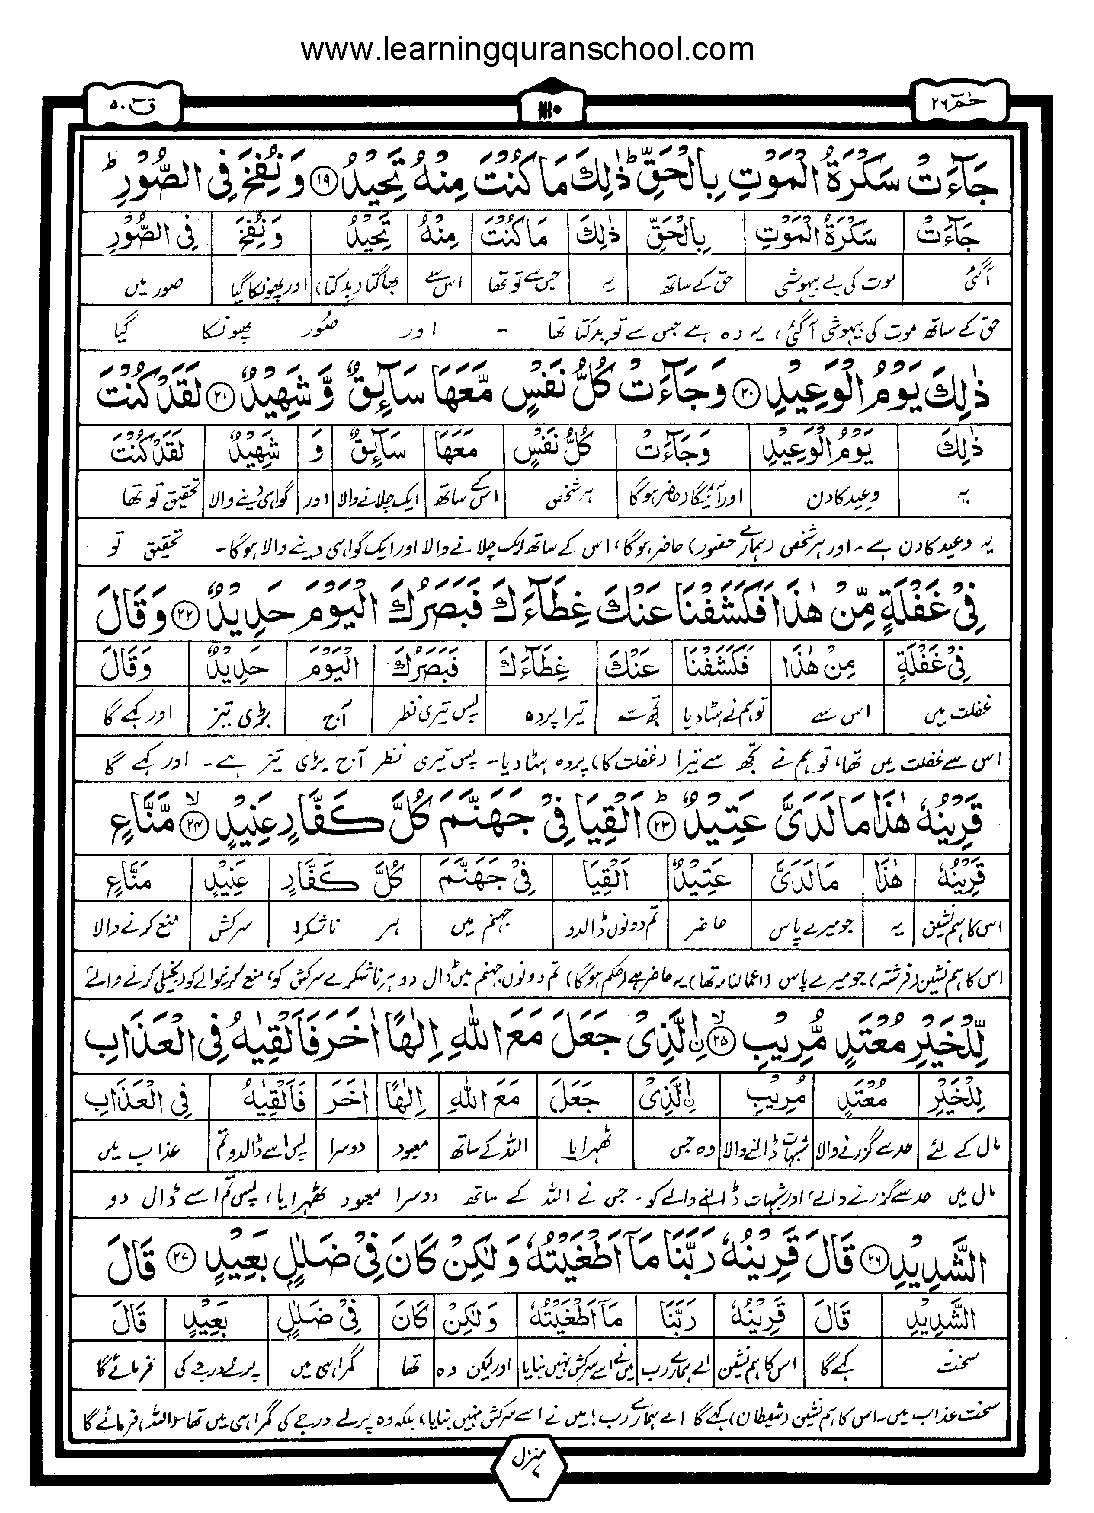 www.learningquranschool.com
حٰمٓ ۲۶
ق ۵۰
جَآءَتْ سَكْرَةُ الْمَوْتِ بِالْحَقِّ ؕ ذٰلِكَ مَا كُنْتَ مِنْهُ تَحِيْدُ ۝۱۹ وَ نُفِخَ فِى الصُّوْرِ ؕ
جَآءَتْ سَكْرَةُ الْمَوْتِ بِالْحَقِّ ذٰلِكَ مَا كُنْتَ مِنْهُ تَحِيْدُ وَ نُفِخَ فِى الصُّوْرِ
آگئی موت کی بے ہوشی حق کے ساتھ یہ جس سے تو تھا اس سے بھاگتا (بدکتا) اور پھونکا گیا صور میں
حق کے ساتھ موت کی بیہوشی آگئی، یہ وہ ہے جس سے تو بدکتا تھا - اور صُور پھونکا گیا
ذٰلِكَ يَوْمُ الْوَعِيْدِ ۝۲۰ وَ جَآءَتْ كُلُّ نَفْسٍ مَّعَهَا سَآئِقٌ وَّ شَهِيْدٌ ۝۲۰ لَقَدْ كُنْتَ
ذٰلِكَ يَوْمُ الْوَعِيْدِ وَ جَآءَتْ كُلُّ نَفْسٍ مَعَهَا سَآئِقٌ وَ شَهِيْدٌ لَقَدْ كُنْتَ
یہ وعید کا دن اور آئیگا (حاضر ہوگا) ہر شخص اس کے ساتھ ایک چلانے والا اور گواہی دینے والا تحقیق تو تھا
یہ وعید کا دن ہے - اور ہر شخص (ہمارے حضور) حاضر ہوگا، اس کے ساتھ ایک چلانے والا اور ایک گواہی دینے والا ہوگا - تحقیق تو
فِىْ غَفْلَةٍ مِّنْ هٰذَا فَكَشَفْنَا عَنْكَ غِطَآءَكَ فَبَصَرُكَ الْيَوْمَ حَدِيْدٌ ۝۲۲ وَ قَالَ
فِىْ غَفْلَةٍ مِنْ هٰذَا فَكَشَفْنَا عَنْكَ غِطَآءَكَ فَبَصَرُكَ الْيَوْمَ حَدِيْدٌ وَ قَالَ
غفلت میں اس سے تو ہم نے ہٹا دیا تجھ سے تیرا پردہ پس تیری نظر آج بڑی تیز اور کہے گا
اس سے غفلت میں تھا، تو ہم نے تجھ سے تیرا (غفلت کا) پردہ ہٹا دیا - پس تیری نظر آج بڑی تیز ہے - اور کہے گا
قَرِيْنُهٗ هٰذَا مَا لَدَىَّ عَتِيْدٌ ۝۲۳ؕ اَلْقِيَا فِىْ جَهَنَّمَ كُلَّ كَفَّارٍ عَنِيْدٍ ۝۲۴ۙ مَّنَّاعٍ
قَرِيْنُهٗ هٰذَا مَا لَدَىَّ عَتِيْدٌ اَلْقِيَا فِىْ جَهَنَّمَ كُلَّ كَفَّارٍ عَنِيْدٍ مَنَّاعٍ
اس کا ہم نشین یہ جو میرے پاس حاضر تم دونوں ڈال دو جہنم میں ہر ناشکرا سرکش منع کرنے والا
اس کا ہم نشین (فرشتہ) جو میرے پاس (اعمالنامہ تھا) یہ حاضر ہے (حکم ہوگا) تم دونوں جہنم میں ڈال دو ہر ناشکرے سرکش کو، منع کرنیوالے کو (بخیلی کرنے والے)
لِّلْخَيْرِ مُعْتَدٍ مُّرِيْبٍ ۝۲۵ۙ ۨالَّذِىْ جَعَلَ مَعَ اللّٰهِ اِلٰهًا اٰخَرَ فَاَلْقِيٰهُ فِى الْعَذَابِ
لِلْخَيْرِ مُعْتَدٍ مُرِيْبٍ ۨالَّذِىْ جَعَلَ مَعَ اللّٰهِ اِلٰهًا اٰخَرَ فَاَلْقِيٰهُ فِى الْعَذَابِ
مال کے لئے حد سے گزرنے والا شبہات ڈالنے والا وہ جس ٹھہرایا اللہ کے ساتھ معبود دوسرا پس اسے ڈال دو تم عذاب میں
مال میں حد سے گزرنے والے، اور شبہات ڈالنے والے کو - جس نے اللہ کے ساتھ دوسرا معبود ٹھہرایا، پس تم اسے ڈال دو
الشَّدِيْدِ ۝۲۶ قَالَ قَرِيْنُهٗ رَبَّنَا مَاۤ اَطْغَيْتُهٗ وَ لٰكِنْ كَانَ فِىْ ضَلٰلٍۭ بَعِيْدٍ ۝۲۷ قَالَ
الشَّدِيْدِ قَالَ قَرِيْنُهٗ رَبَّنَا مَاۤ اَطْغَيْتُهٗ وَ لٰكِنْ كَانَ فِىْ ضَلٰلٍ بَعِيْدٍ قَالَ
سخت کہے گا اس کا ہم نشین اے ہمارے رب میں نے اسے سرکش نہیں بنایا اور لیکن وہ تھا گمراہی میں پرلے درجے کی فرمائے گا
سخت عذاب میں - اس کا ہم نشین (شیطان) کہے گا اے ہمارے رب! میں نے اسے سرکش نہیں بنایا، بلکہ وہ پرلے درجے کی گمراہی میں تھا (اللہ) فرمائے گا
منزل ۷